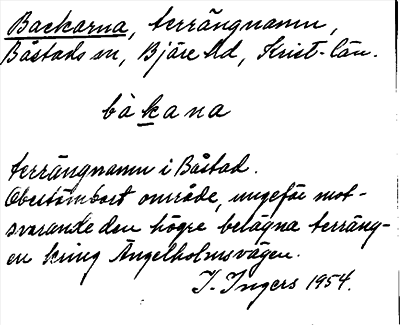 Backarna, terrängnamn,
Båstads sn, Bjäre hd, Krist-län.
bàkana
terrängnamn i Båstad.
Obestämbart område, ungefär mot-
svarande den högre belägna terräng-
en kring Ängelholmsvägen.
I. Ingers 1954.